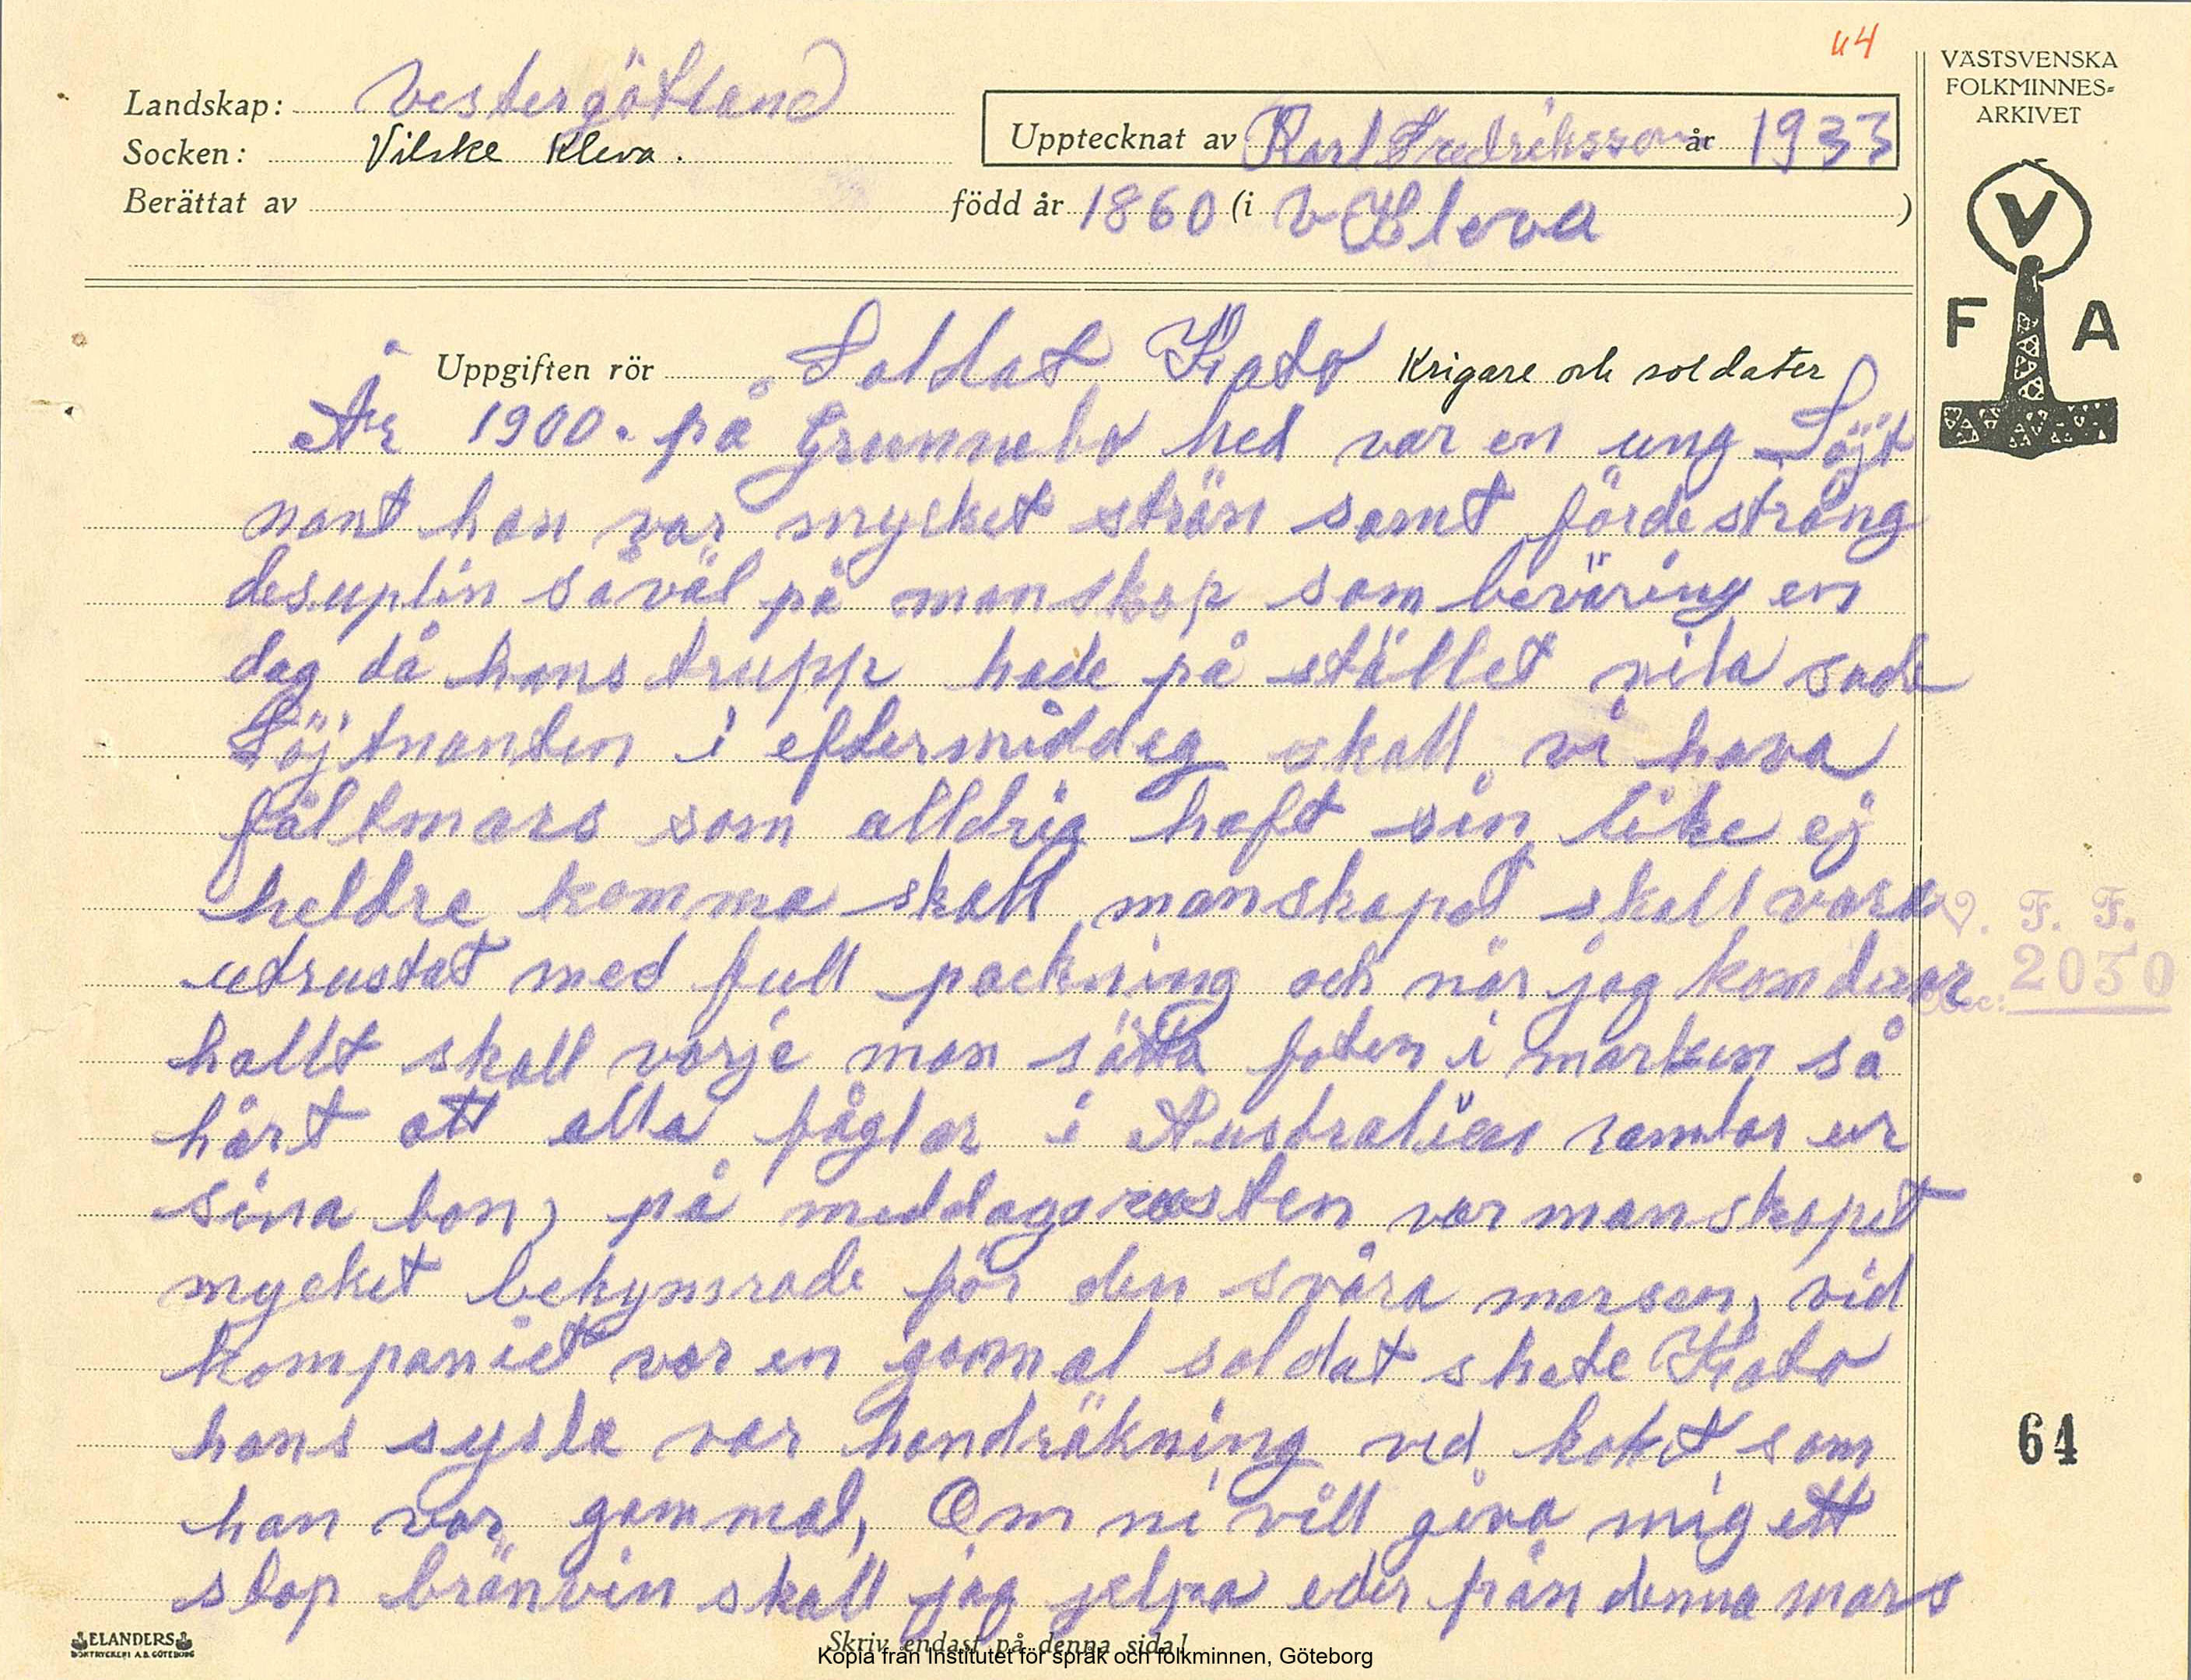 44
VÄSTSVENSKA
FOLKMINNES=
ARKIVET
Landskap: Vestergötland
Socken: Vilske Kleva.
Upptecknat av Karl Fredriksson år 1933
Berättat av född år 1860 (i V Kleva )
V
F A
Uppgiften rör Soldat Kato Krigare och soldater
År 1900. på Grunnebo hed var en ung Löjt
nant han var mycket strän samt förde sträng
desuplin såväl på manskap som beväring en
dag då hans trupp hade på stället vila sade
Löjtnanten i eftermiddag skall vi hava
fältmars som alldrig haft sin like ej
heldre komma skall manskapet skall vara
utrustat med full packning och när jag komderar
hallt skall varje man sätta foten i marken så
hårt att alla fåglar i Australien ramlar ur
sina bon, på meddagsrasten var manskapet
mycket bekymrade för den svåra marsen, vid
kompaniet var en gammal soldat shete Kato
hans sysla var handräkning ved koket som
han var gammal, Om ni vill giva mig ett
stop bränvin skall jag jelpa eder från denna mars
V. F. F.
Acc: 2050
64
ELANDERS
BOKTRYCKERI A.B. GÖTEBORG
Skriv endast på denna sida!
Kopia från Institutet för språk och folkminnen, Göteborg